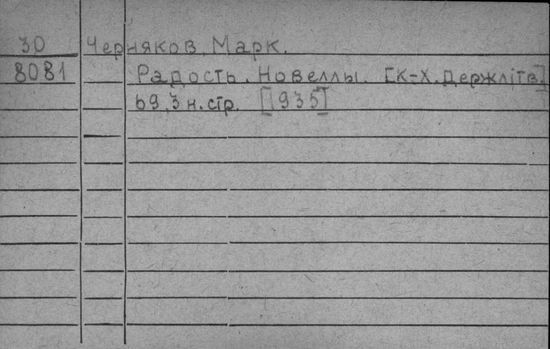 30 Черняков, Марк.
8081 Радость. Новеллы. [К-Х. Держлітв]
69,3 н. стр. [1935]